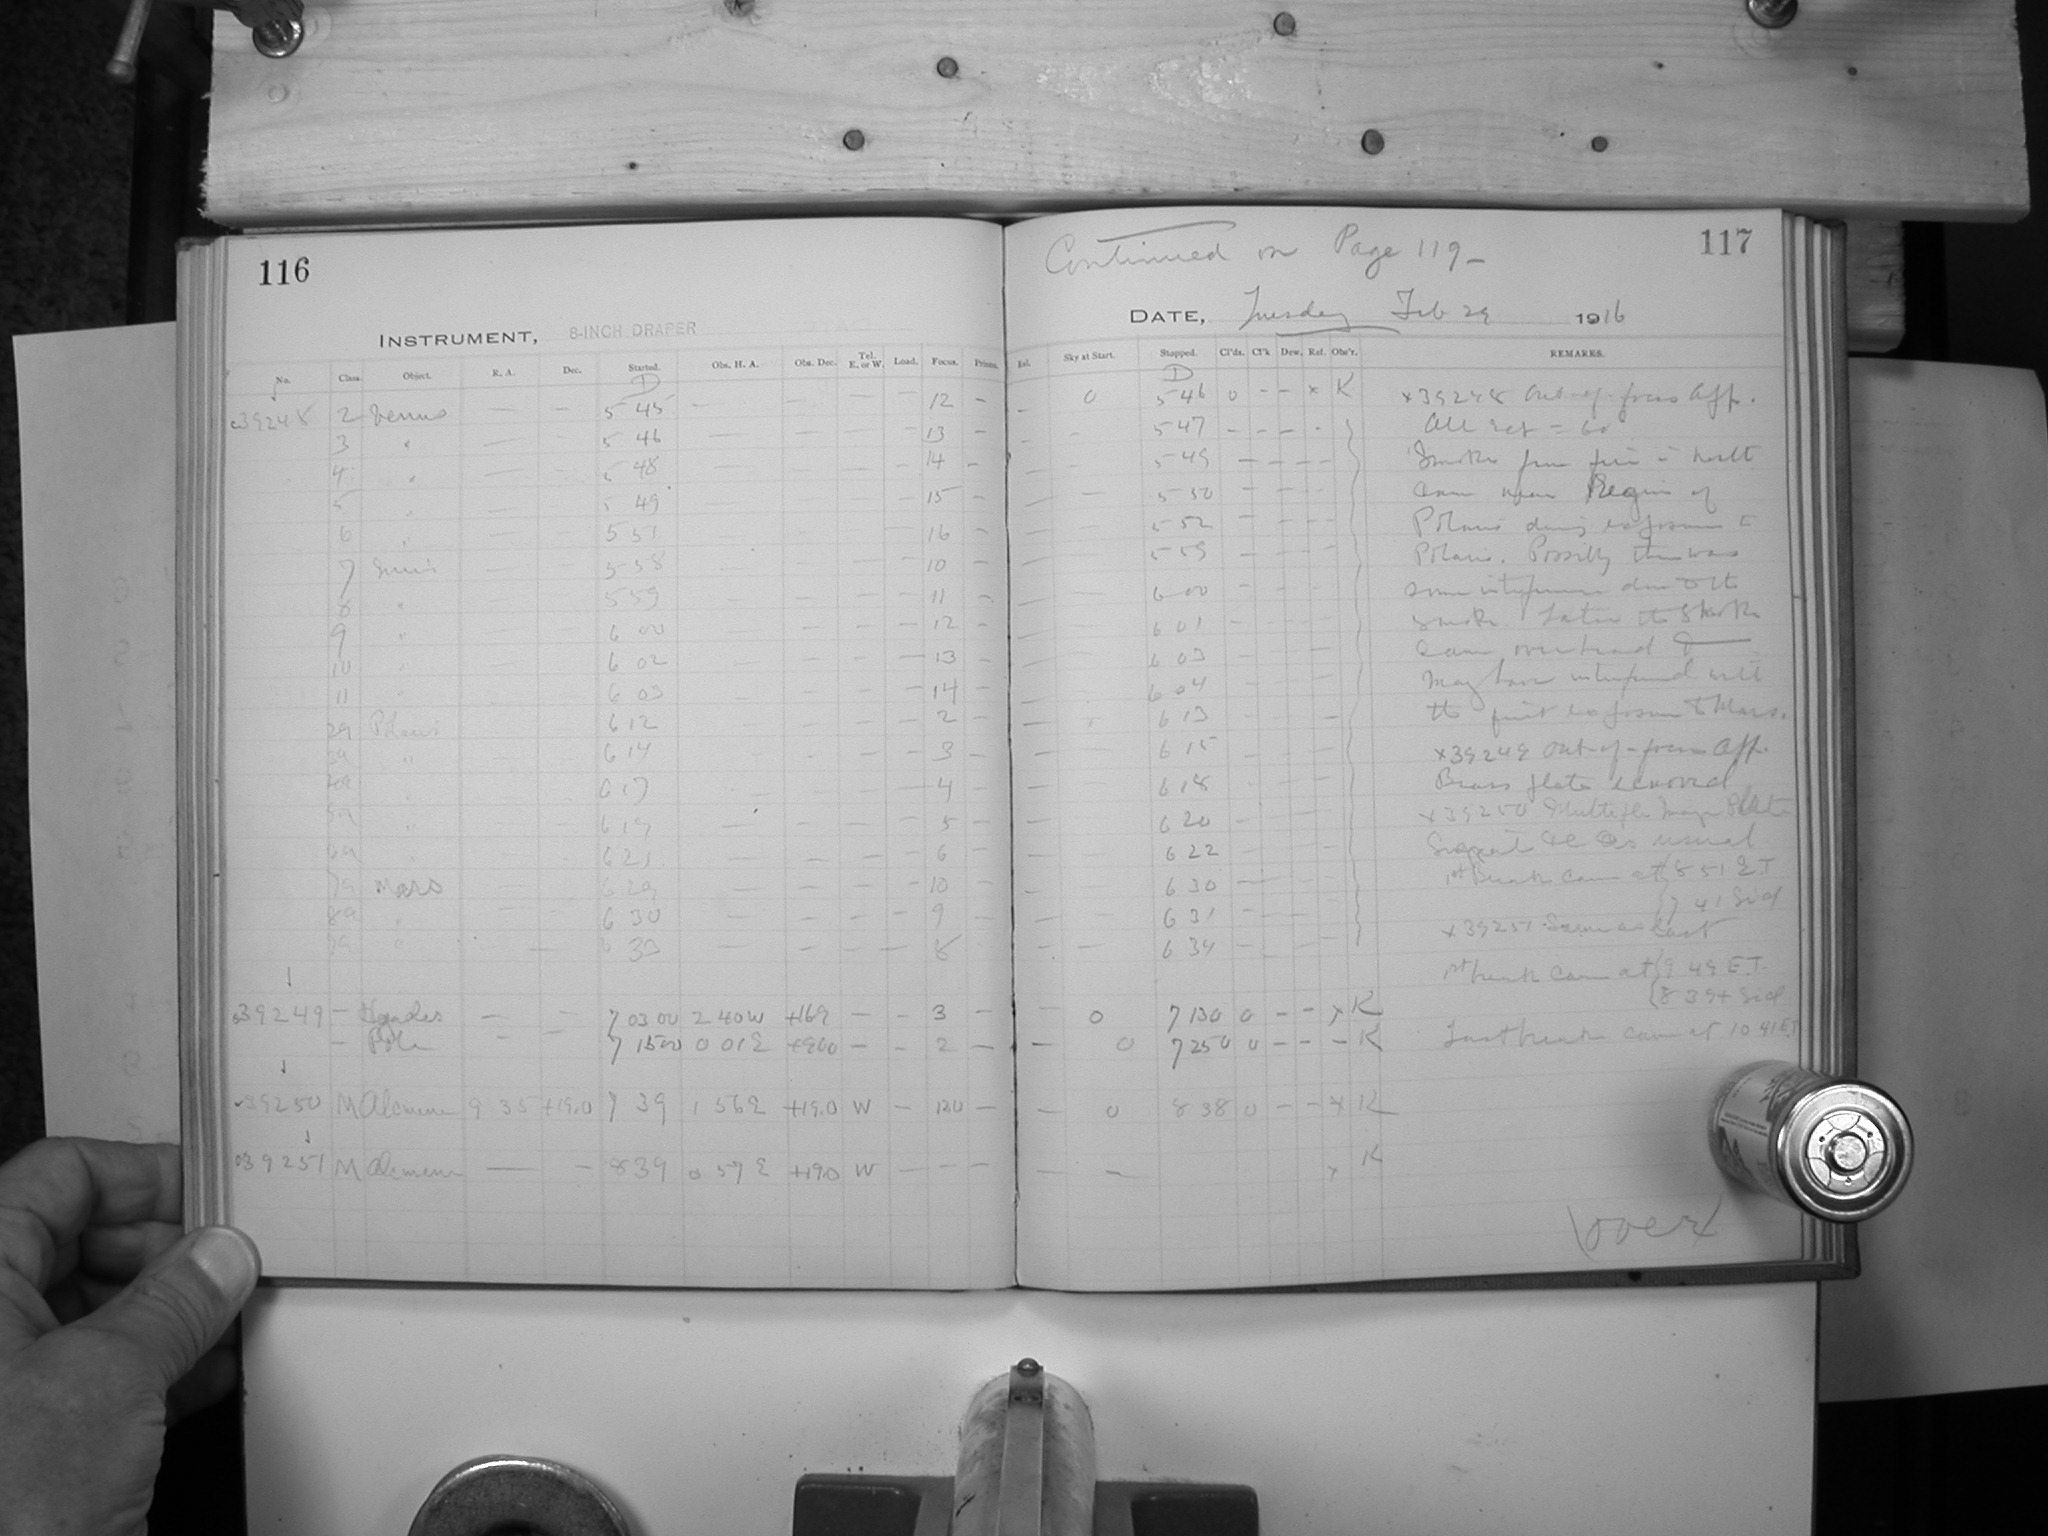 116
INSTRUMENT, 8-INCH DRAPER
No. Class. Object. R. A. Dec. Started. Obs. H. A. Obs. Dec. Tel. E. or W. Load. Focus. Prisms.
D
39248 2 Venus — — 5 45 — — — — 12 —
3 " — — 5 46 — — — — 13 —
4 " — — 5 48 — — — — 14 —
5 " — — 5 49 — — — — 15 —
6 " — — 5 51 — — — — 16 —
7 Sirius — — 5 58 — — — — 10 —
8 " — — 5 59 — — — — 11 —
9 " 6 00 — — — — 12 —
10 " 6 02 — — — — 13 —
11 " 6 03 — — — — 14 —
2a Polaris 6 12 — — — — 2 —
3a " 6 14 — — — — 3 —
4a " 6 17 — — — — 4 —
5a " 6 19 — — — — 5 —
6a " 6 21 — — — — 6 —
7a Mars 6 29 — — — — 10 —
8a " 6 30 — — — — 9 —
9a " 6 33 — — — — 8 —
39249 — Hyades — — 7 03 00 2 40 W +16.9 — — 3 —
— Pole — — 7 15 00 0 01 E — — 2 —
39250 M Alcmene 9 35 +19.0 7 39 1 56 E +19.0 W — 120 —
39251 M Alcmene — — 8 39 0 57 E +19.0 W — — —
Continued on Page 119 —
117
DATE, Tuesday Feb 29 1916
Exl. Sky at Start. Stopped. Cl'ds. Cl'k Dew. Ref. Obs'r. REMARKS.
D
— 0 5 46 0 — — x K
— — 5 47 — — —
— — 5 49 — — — —
— — 5 50 — — —
— — 5 52 — — —
— — 5 59 — — —
— — 6 00 — — —
— — 6 01 — — —
— — 6 03 — — —
— — 6 04 — — —
6 13 — — —
— — 6 15 — — —
— — 6 18 — — —
— — 6 20 — — —
— — 6 22 — — —
— 6 30 — — —
— — 6 31 — — —
— — 6 34 — — —
— 0 7 13 0 0 — — x K
— 0 7 25 0 0 — — — K
— 0 8 38 0 — — x K
— — x K
x 39248 Out-of-focus App.
All ref = 60
Smoke from fire in North
came near Region of
Polaris during exposure to
Polaris. Possibly there was
some interference due to the
smoke. Later the smoke
came overhead &
may have interfered with
the first exposure to Mars.
x 39249 Out-of-focus App.
Brass plate removed
x 39250 Multiple Image Plate
as usual
1st break came at 8 51 E T
7 41 Sid
x 39251 Same as last
1st break came at 9 49 E.T.
8 39+ Sid
Last break came at 10 41 E T
over